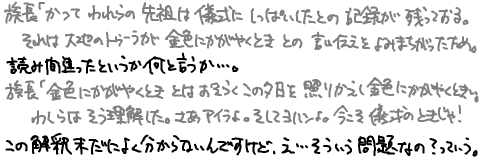 族長「かつて われらの 先祖は 儀式に しっぱいしたとの 記録が 残っておる。
それは 大地のトゥーラが 金色にかがやくとき との 言い伝えを よみまちがったため。
読み間違ったというか何と言うか…。
族長「金色にかがやくとき とは おそらく この夕日を 照りかえし 金色にかがやくとき。
わしらは そう理解した。さあ アイラよ。そして ヨハンよ。今こそ 儀式の ときじゃ!
この解釈未だによく分からないんですけど、え…そういう問題なの?っていう。